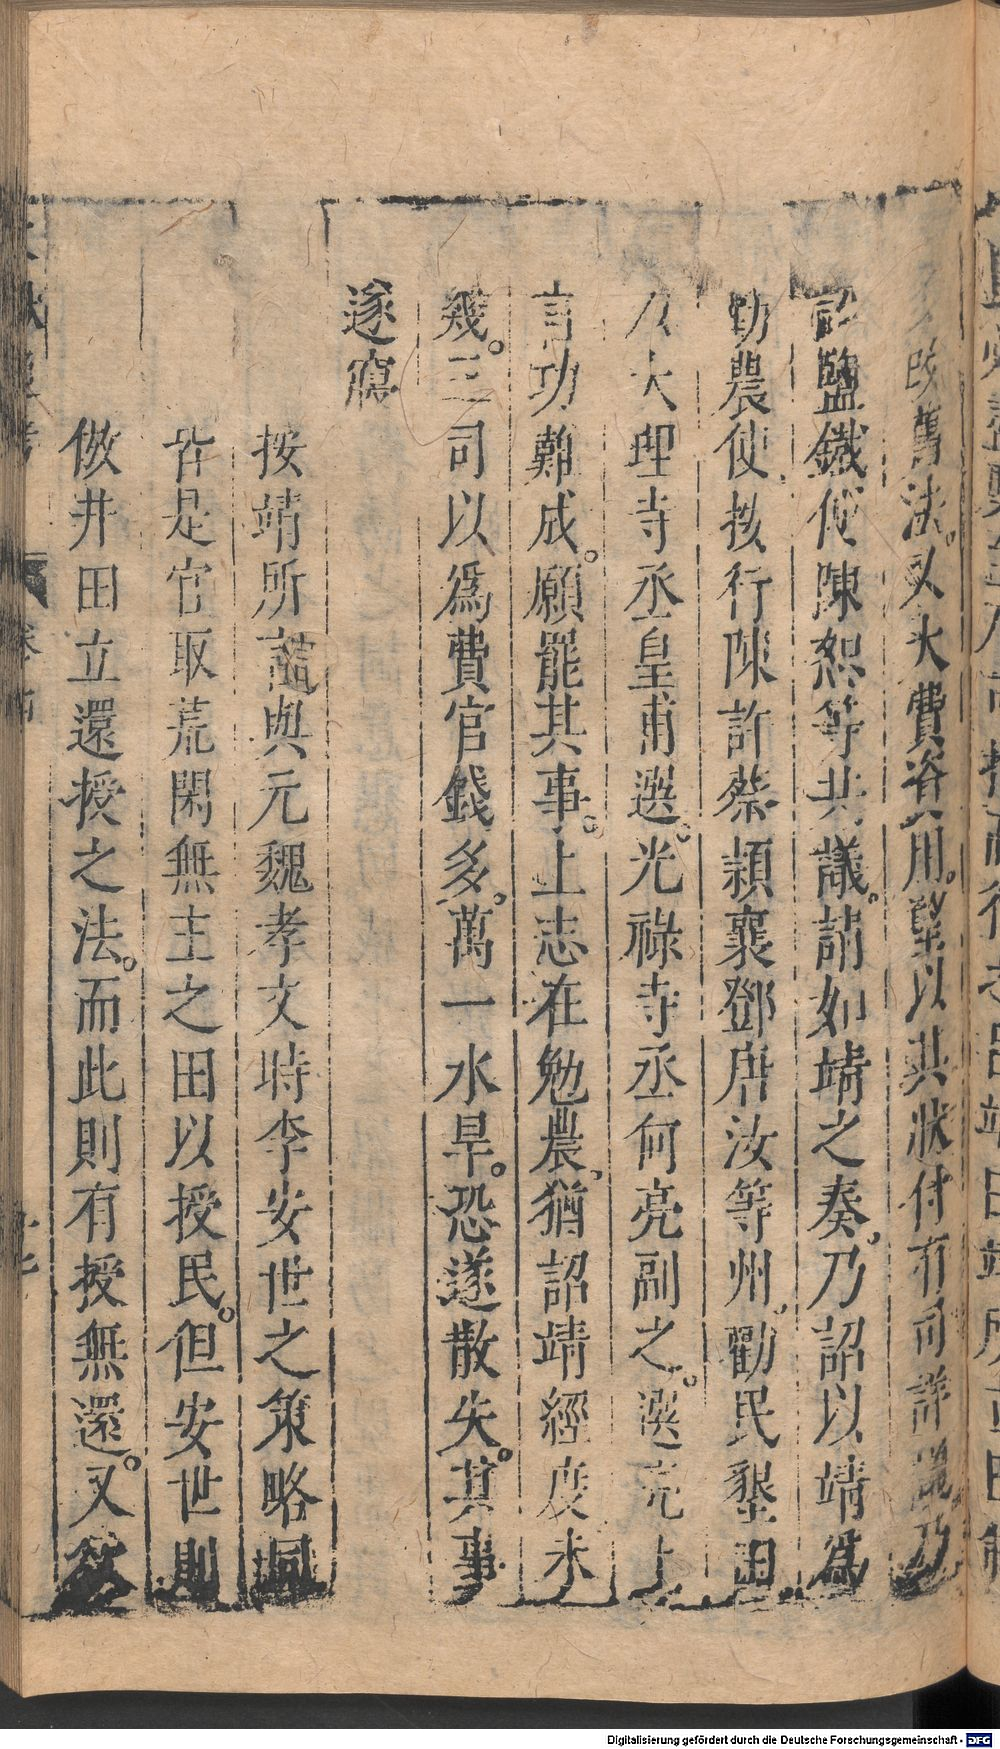 改舊法又大費資用堅以其狀付有司詳議乃
詔鹽鐵使陳恕等共議。請如靖之奏。乃詔以靖爲
勸農使按行陳許蔡潁襄鄧唐汝等州。勸民墾田
以大理寺丞皇甫選。光祿寺丞何亮副之。選亮上
言功難成。願罷其事。上志在勉農、猶詔靖經度未
幾。三司以爲費官錢多。萬一水旱。恐遂散失。其事
遂寢
按靖所言與元魏孝文時李安世之策略同
皆是官取荒閑無主之田以授民。但安世則
倣井田立還授之法。而此則有授無還。又
Digitalisierung gefördert durch die Deutsche Forschungsgemeinschaft - DFG